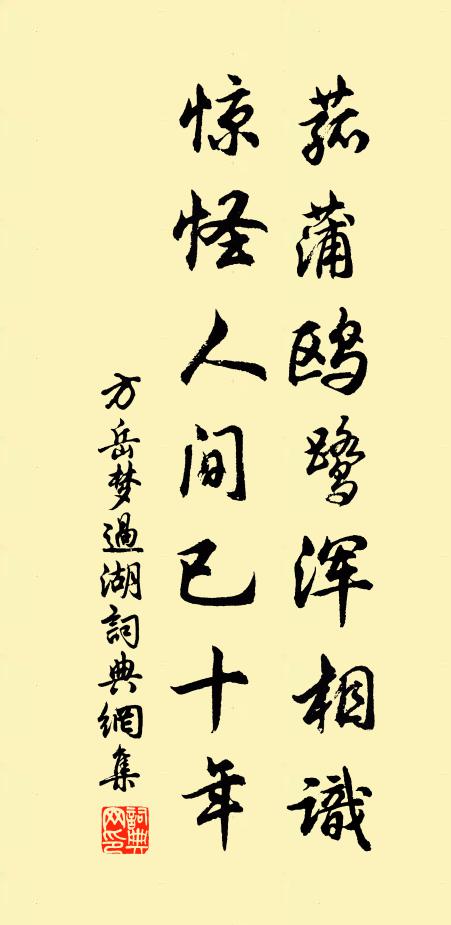 菰蒲鸥鹭浑相識
惊怪人间已十年
方岳梦過湖詞典網集
詞典网印